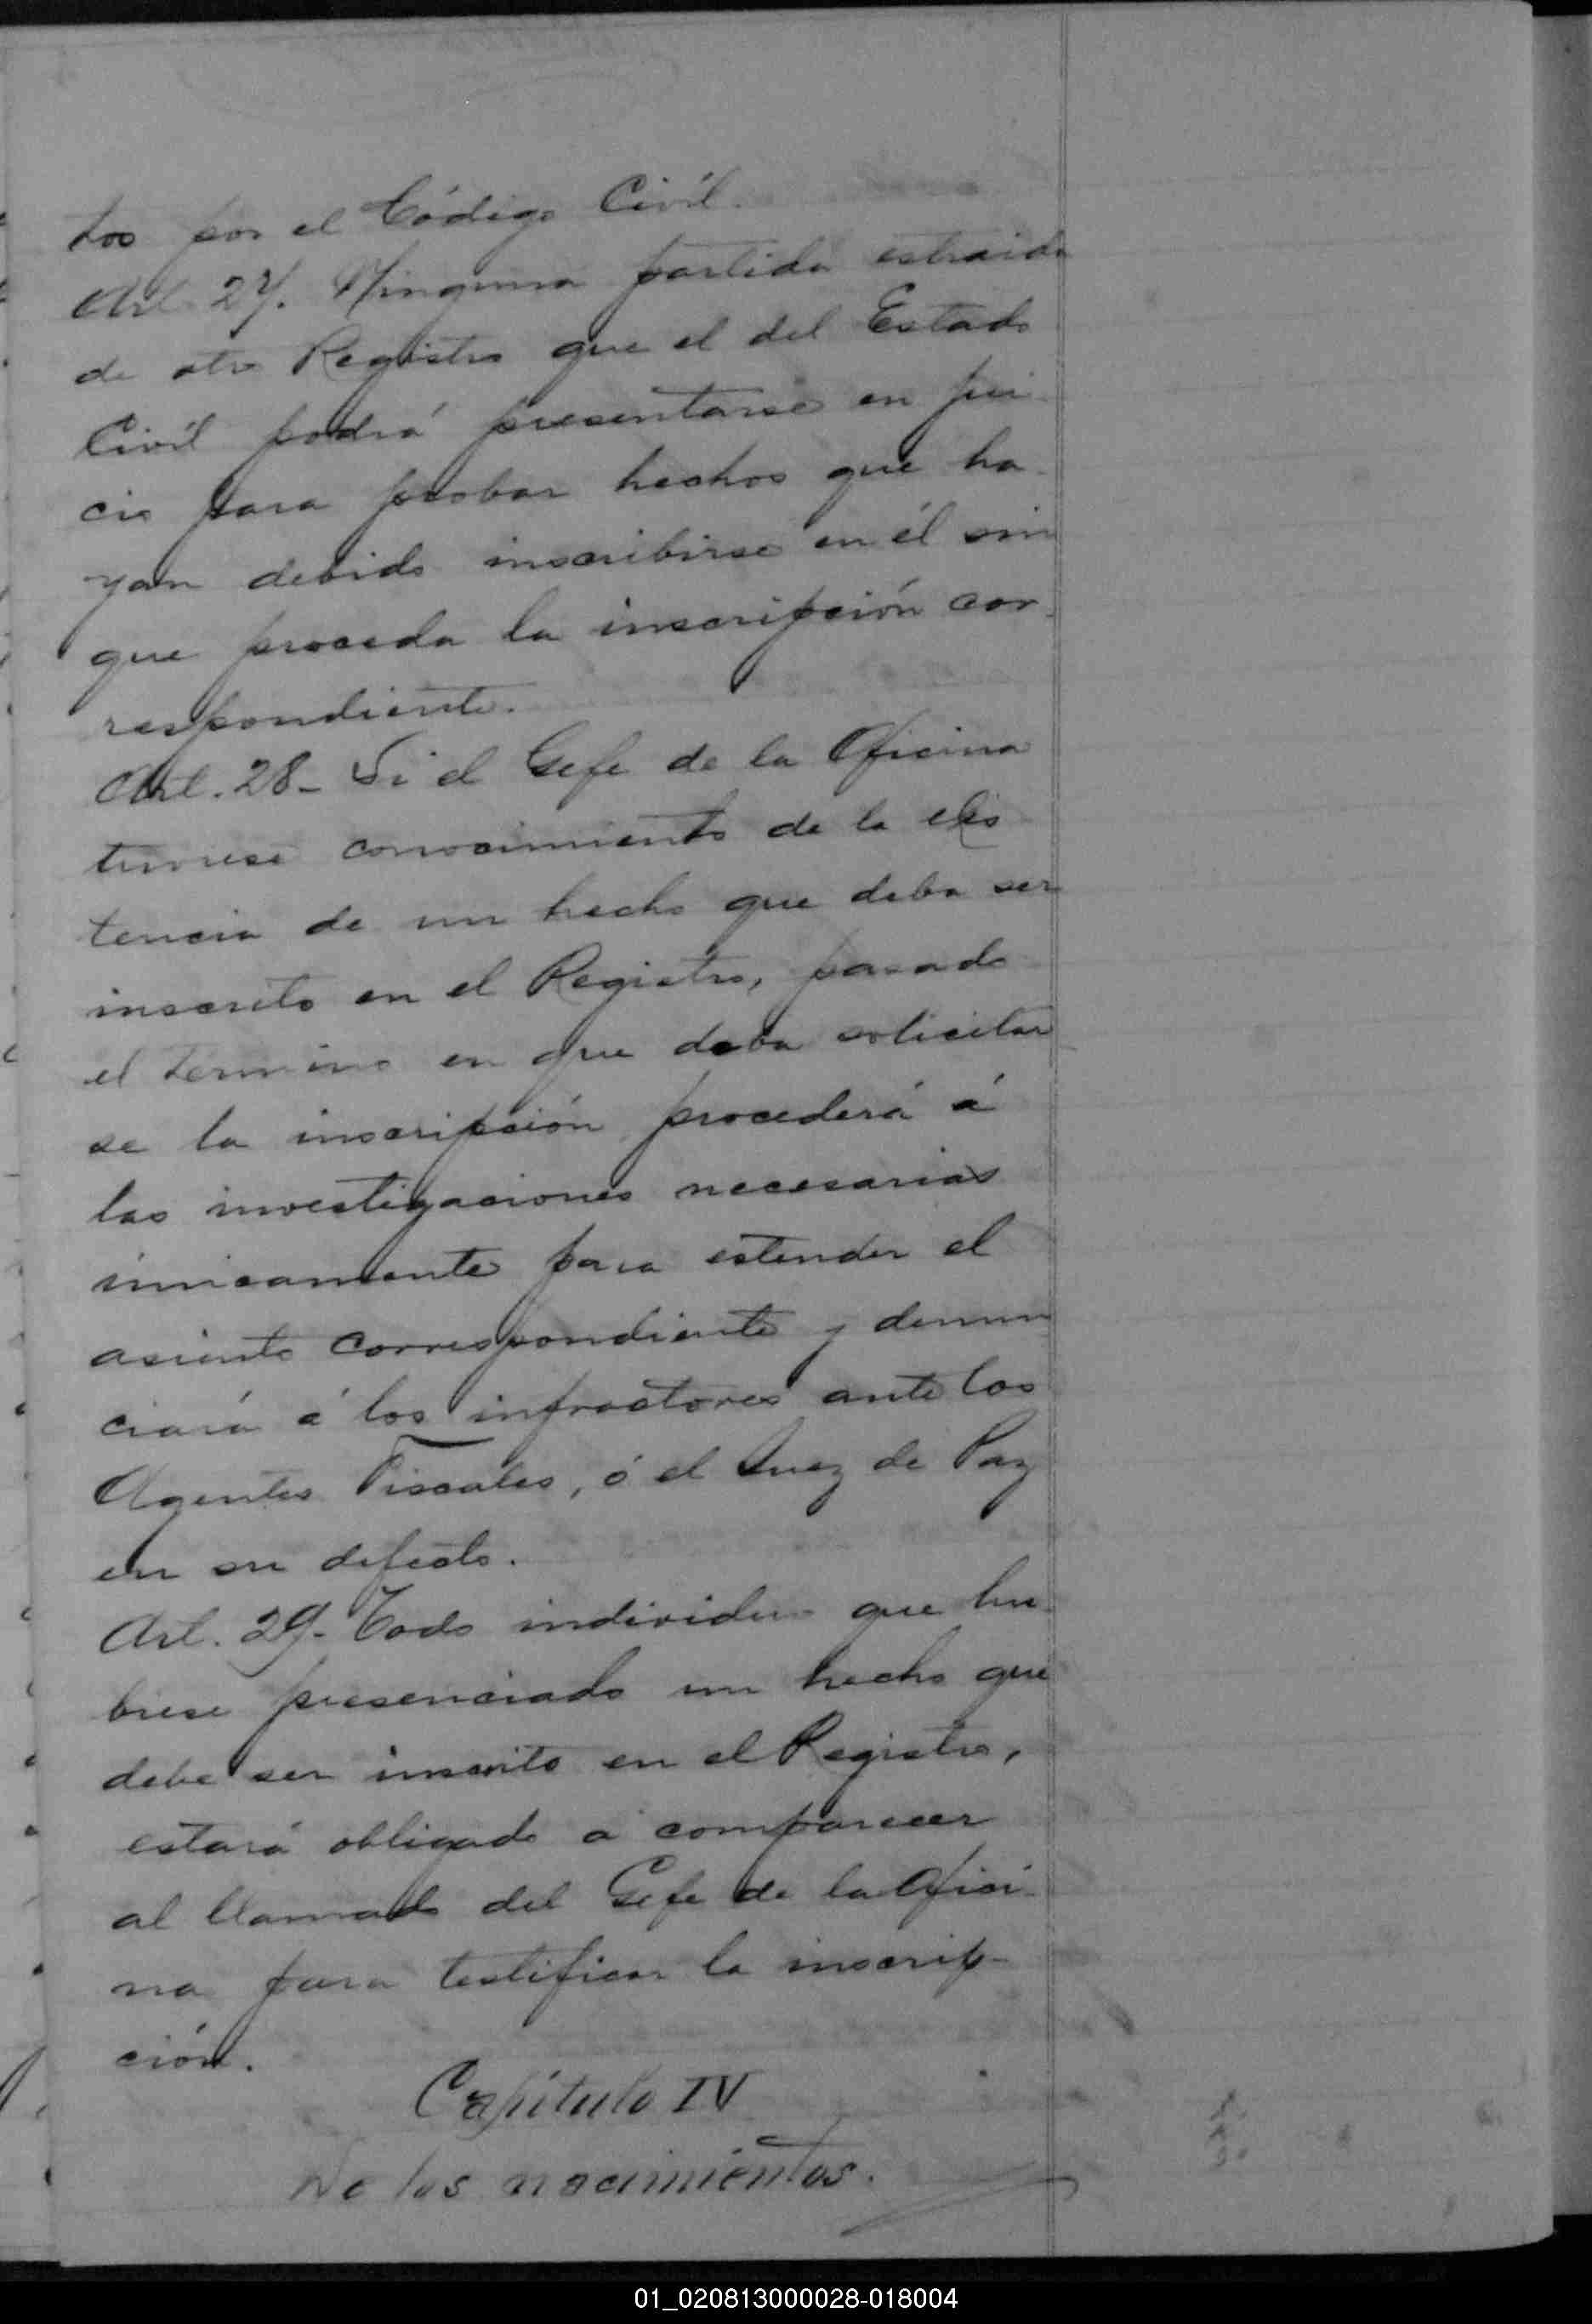 tos por el Código Civil.
Art 27. Ninguna partida estraida
de otro Registro que el del Estado
Civil podrá presentarse en jui-
cio para probar hechos que ha-
yan debido inscribirse en él sin
que proceda la inscripción cor-
respondiente.
Art. 28- Si el Gefe de la Oficina
tuviese conocimiento de la exis
tencia de un hecho que deba ser
inscrito en el Registro, pasado
el termino en que deba solicitar
se la inscripción procederá á
las investigaciones necesarias
únicamente para estender el
asiento correspondiente y denun
ciará á los infractores ante los
Agentes Fiscales, ó el Juez de Paz
en su defecto.
Art. 29- Todo individuo que hu-
biese presenciado un hecho que
debe ser inscrito en el Registro,
estará obligado a comparecer
al llamado del Gefe de la Ofici-
na para testificar la inscrip-
ción.
Capítulo IV
De los nacimientos.
01_020813000028-018004